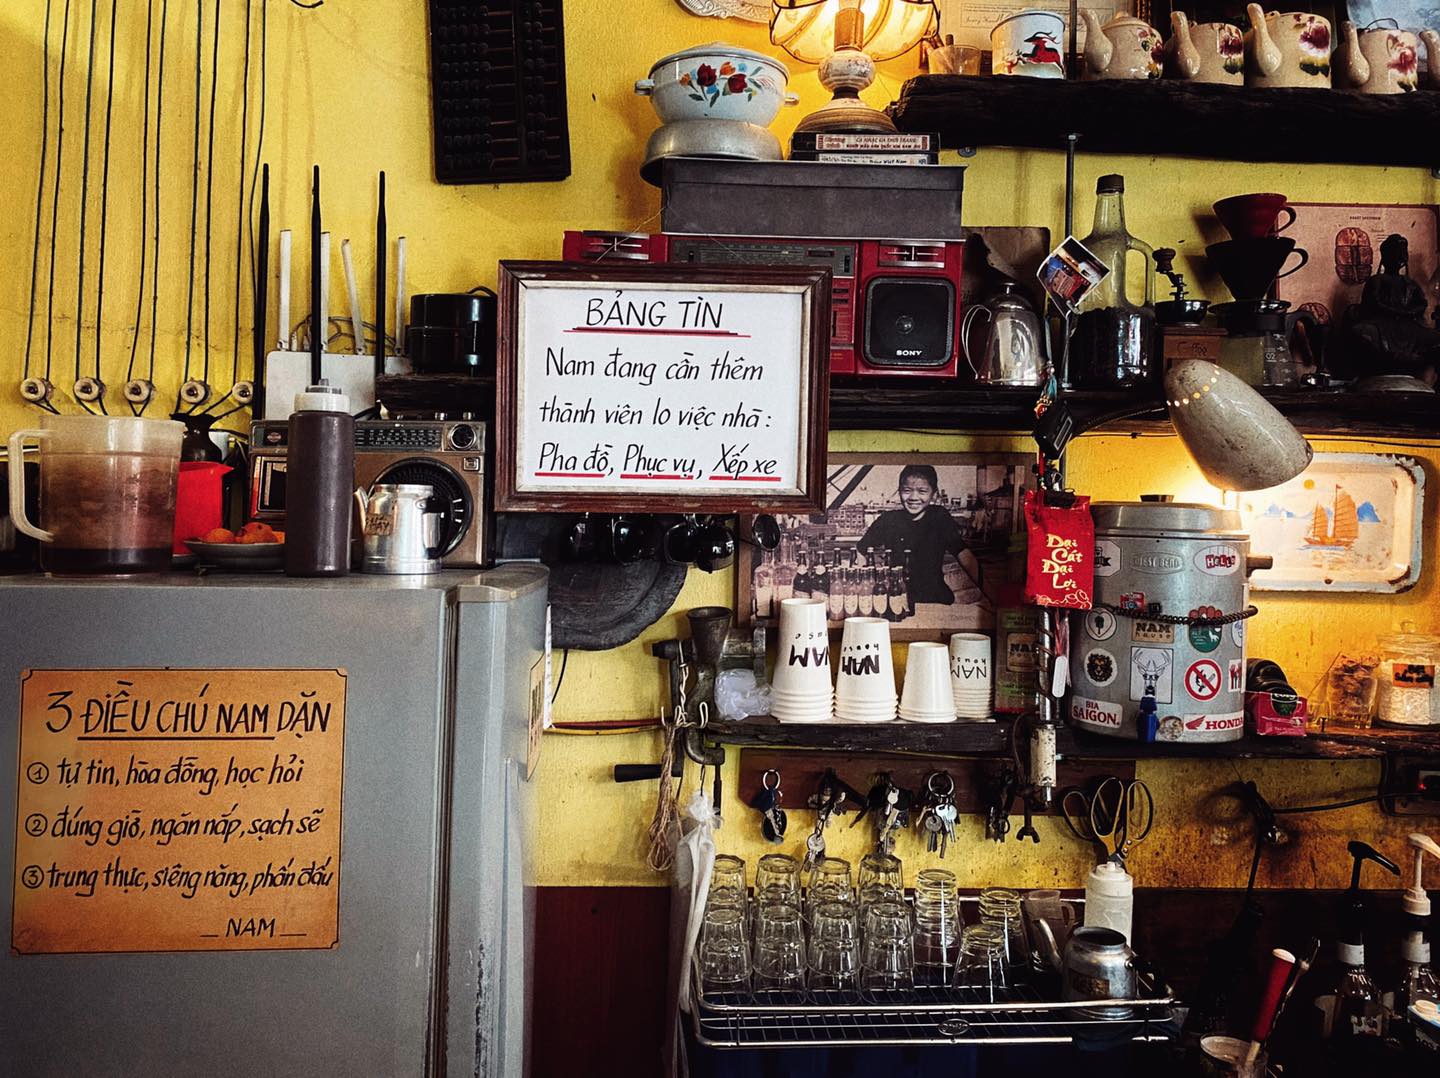 BẢNG TÌN
Nam đang cần thêm
thành viên lo việc nhà :
Pha đồ, Phục vụ, Xếp xe
3 ĐIỀU CHÚ NAM DẶN
① tự tin, hòa đồng, học hỏi
② đúng giờ, ngăn nắp, sạch sẽ
③ trung thực, siêng năng, phấn đấu
NAM
SONY
Đại
Cát
Đại
Lợi
NAM
house
NAM
house
NAM
house
HELLO
NAM
house
BIA
SAIGON.
HONDA
Coffee
02